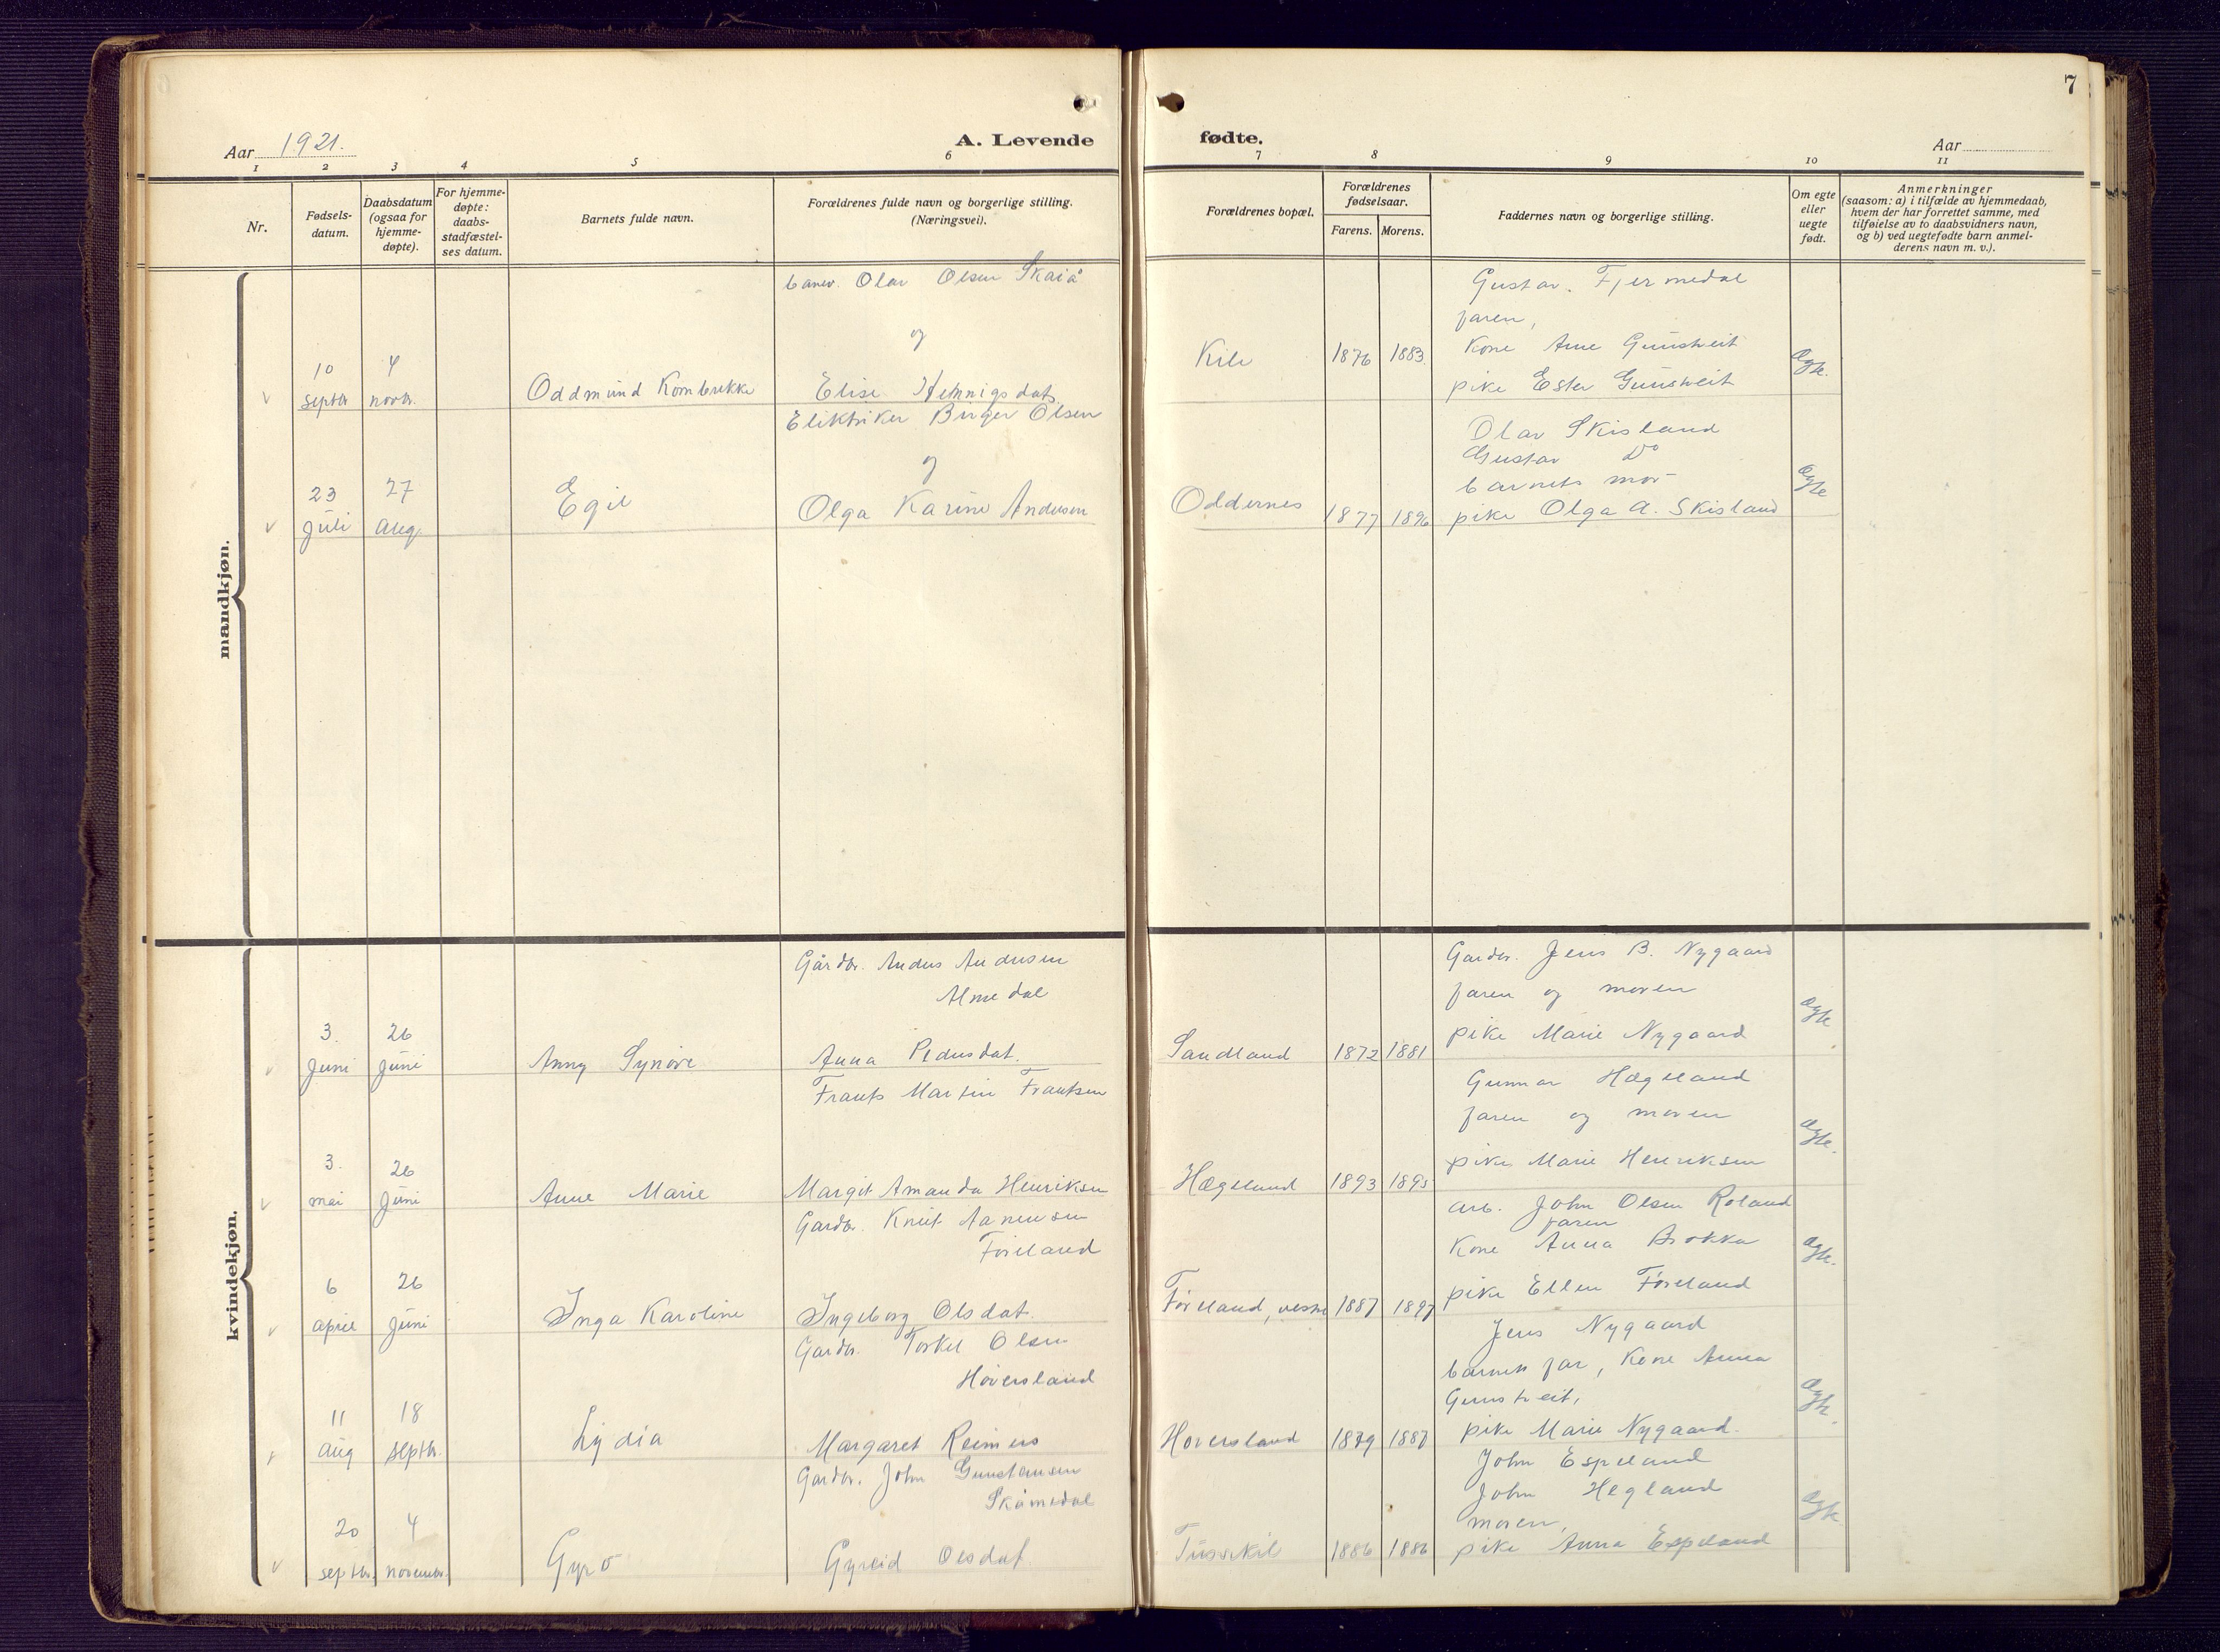 7
Aar 1921.
A. Levende
fødte.
Aar
1 2 3 4 5 6 7 8 9 10 11
Nr.
Fødsels-
datum.
Daabsdatum
(ogsaa for
hjemme-
døpte).
For hjemme-
døpte:
daabs-
stadfæstel-
ses datum.
Barnets fulde navn.
Forældrenes fulde navn og borgerlige stilling.
(Næringsvei).
Forældrenes bopæl.
Forældrenes
fødselsaar.
Farens. Morens.
Faddernes navn og borgerlige stilling.
Om egte
eller
uegte
født.
Anmerkninger
(saasom: a) i tilfælde av hjemmedaab,
hvem der har forrettet samme, med
tilføielse av to daabsvidners navn,
og b) ved uegtefødte barn anmel-
derens navn m. v.).
mandkjøn.
10 septbr.
4 novbr.
Oddmund Kornbrekke
Olav Olsen Skaiå
og
Elise Hennigsdat.
Kile
1876 1883.
Gustav Fjermedal
faren,
Kone Ane Gunstveit
pike Ester Gunstveit
Ægte.
23 juli
27 aug.
Egil
Eliktriker Birger Olsen
og
Olga Karine Andersen
Oddernes
1877 1896
Olav Skisland
Gustav Do
barnets mor
pike Olga A. Skisland
Ægte
kvindekjøn.
3. Juni
26 Juni
Anny Synøve
Gårdbr. Anders Andersen
Almedal
Anna Pedersdat.
Sandland
1872 1881
Gardbr. Jens B. Nygaard
faren og moren
pike Marie Nygaard
Ægte
3. mai
26 Juni
Anne Marie
Frants Martin Frantsen
Margit Amanda Henriksen
Hægeland
1893 1895
Gunnar Hægeland
faren og moren
pike Marie Henriksen
Ægte.
6 april
26 Juni
Inga Karoline
Gardbr. Knut Aanensen
Føreland
Ingeborg Olsdat.
Føreland, vestre
1887 1897
arb. John Olsen Roland
faren
Kone Anna Brokka
pike Ellen Føreland
Ægte.
11 aug
18 septbr.
Lydia
Gardbr. Torkel Olsen
Hoversland
Margaret Reimers
Hoversland
1879 1887
Jens Nygaard
barnets far, Kone Anna
Gunstveit,
pike Marie Nygaard.
Ægte.
20 septbr.
4 novembr.
Gyro
Gardbr. John Gunstensen
Skåmedal
Gyreid Olsdat.
1886 1886
John Espeland
John Hegland
moren,
pike Anna Espeland
Ægte